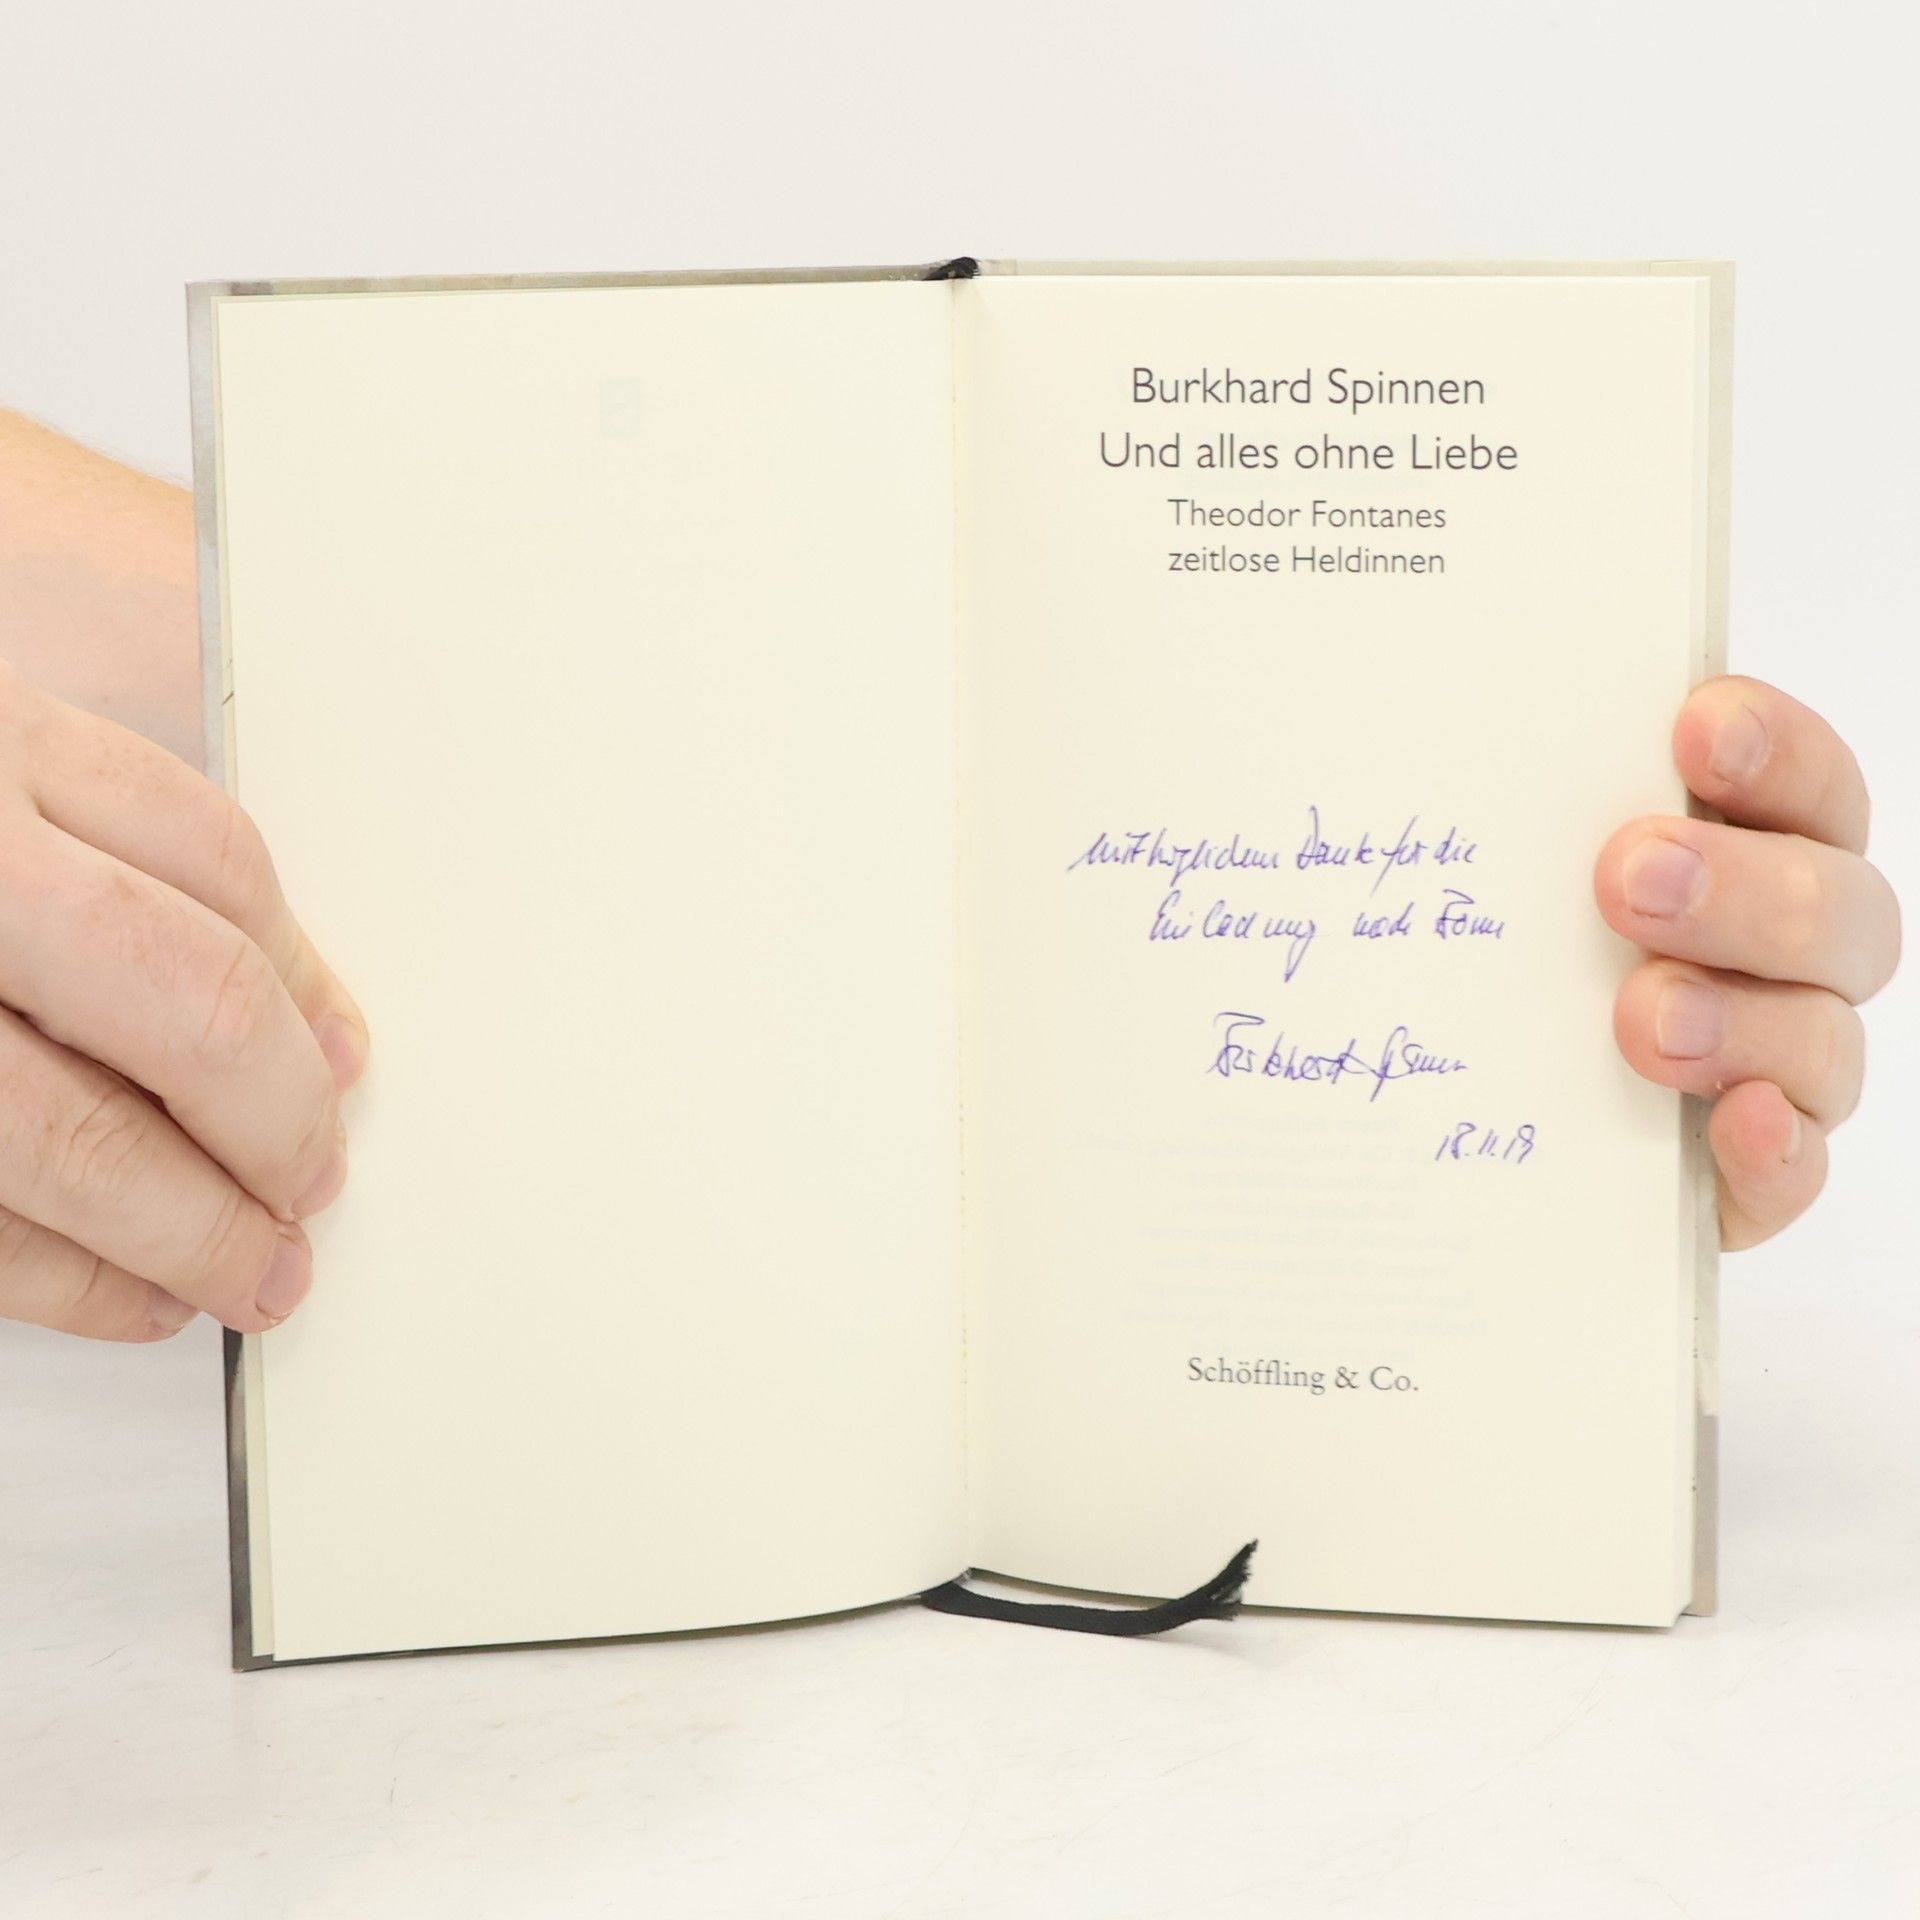 Burkhard Spinnen
Und alles ohne Liebe
Theodor Fontanes
zeitlose Heldinnen
Mit herzlichem Dank für die
Einladung nach Bonn
Burkhard Spinnen
18.11.19
Schöffling & Co.